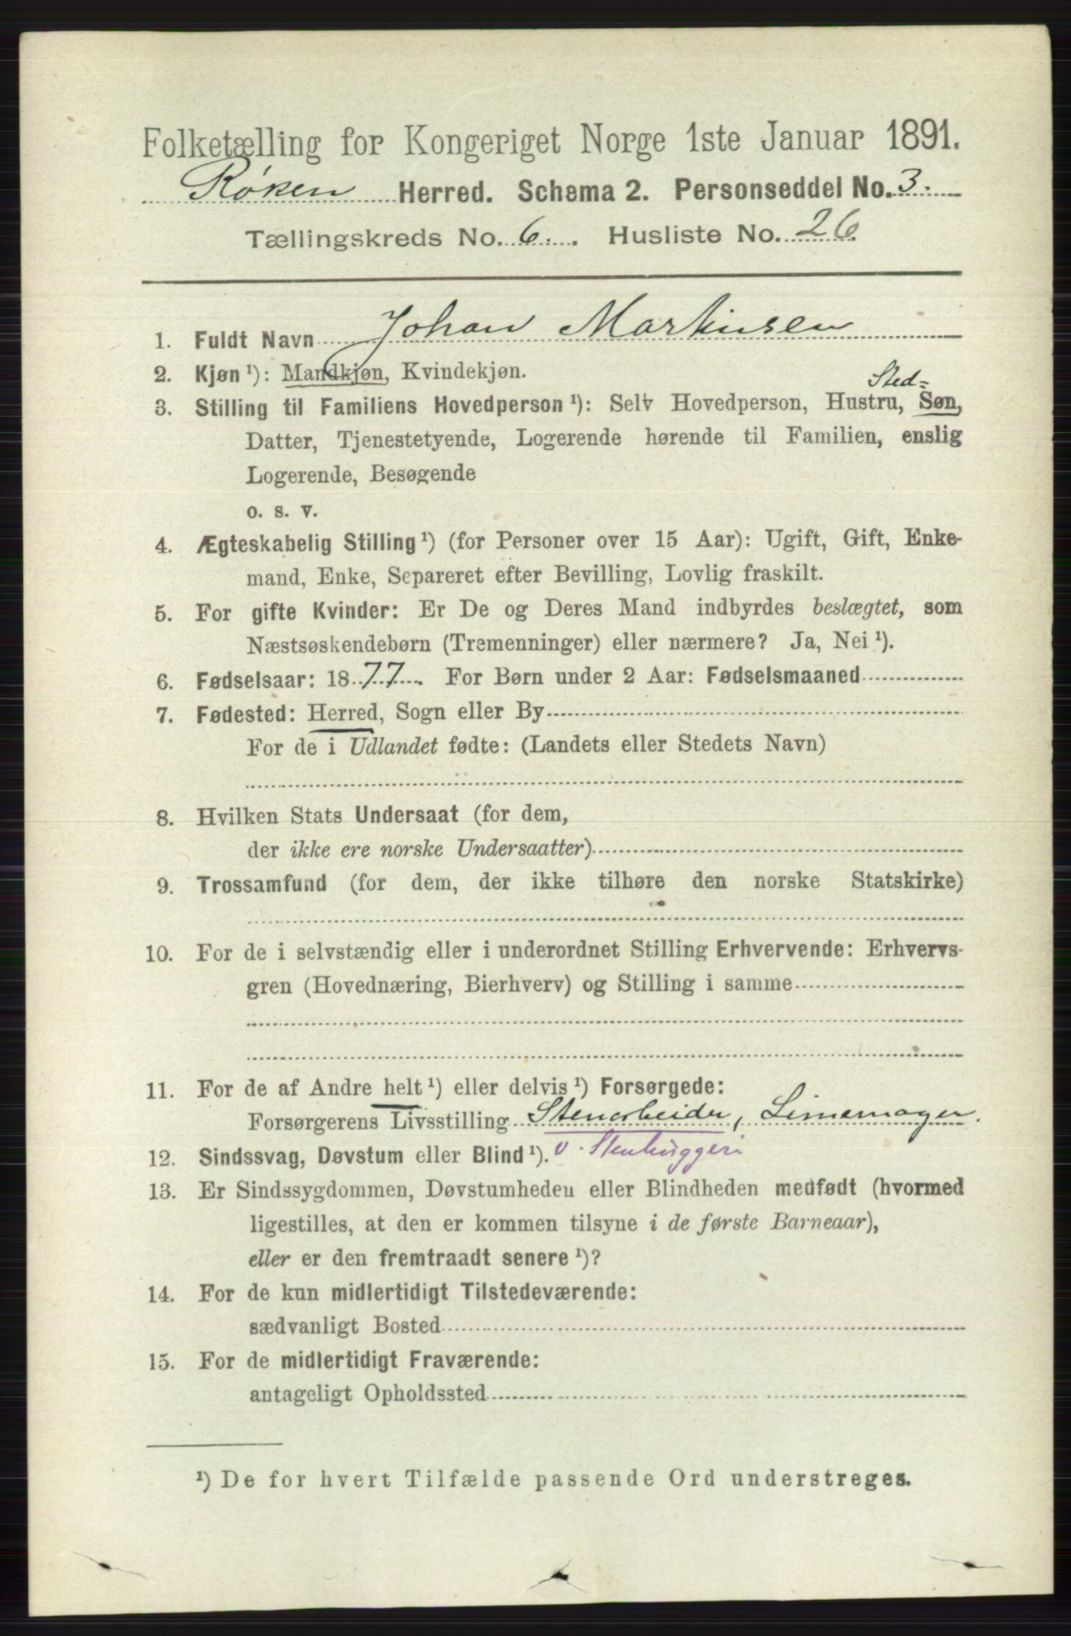 Folketælling for Kongeriget Norge 1ste Januar 1891.
Røken Herred. Schema 2. Personseddel No. 3.
Tællingskreds No. 6. Husliste No. 26.
1. Fuldt Navn Johan Martinsen
2. Kjøn ¹): Mandkjøn, Kvindekjøn.
Sted=
3. Stilling til Familiens Hovedperson ¹): Selv Hovedperson, Hustru, Søn,
Datter, Tjenestetyende, Logerende hørende til Familien, enslig
Logerende, Besøgende
o. s. v.
4. Ægteskabelig Stilling ¹) (for Personer over 15 Aar): Ugift, Gift, Enke-
mand, Enke, Separeret efter Bevilling, Lovlig fraskilt.
5. For gifte Kvinder: Er De og Deres Mand indbyrdes beslægtet, som
Næstsøskendebørn (Tremenninger) eller nærmere? Ja, Nei ¹).
6. Fødselsaar: 1877. For Børn under 2 Aar: Fødselsmaaned
7. Fødested: Herred, Sogn eller By
For de i Udlandet fødte: (Landets eller Stedets Navn)
8. Hvilken Stats Undersaat (for dem,
der ikke ere norske Undersaatter)
9. Trossamfund (for dem, der ikke tilhøre den norske Statskirke)
10. For de i selvstændig eller i underordnet Stilling Erhvervende: Erhvervs-
gren (Hovednæring, Bierhverv) og Stilling i samme
11. For de af Andre helt ¹) eller delvis ¹) Forsørgede:
Forsørgerens Livsstilling Stenarbeider, Limemager.
12. Sindssvag, Døvstum eller Blind ¹). v. Stenhuggeri
13. Er Sindssygdommen, Døvstumheden eller Blindheden medfødt (hvormed
ligestilles, at den er kommen tilsyne i de første Barneaar),
eller er den fremtraadt senere ¹)?
14. For de kun midlertidigt Tilstedeværende:
sædvanligt Bosted
15. For de midlertidigt Fraværende:
antageligt Opholdssted
¹) De for hvert Tilfælde passende Ord understreges.